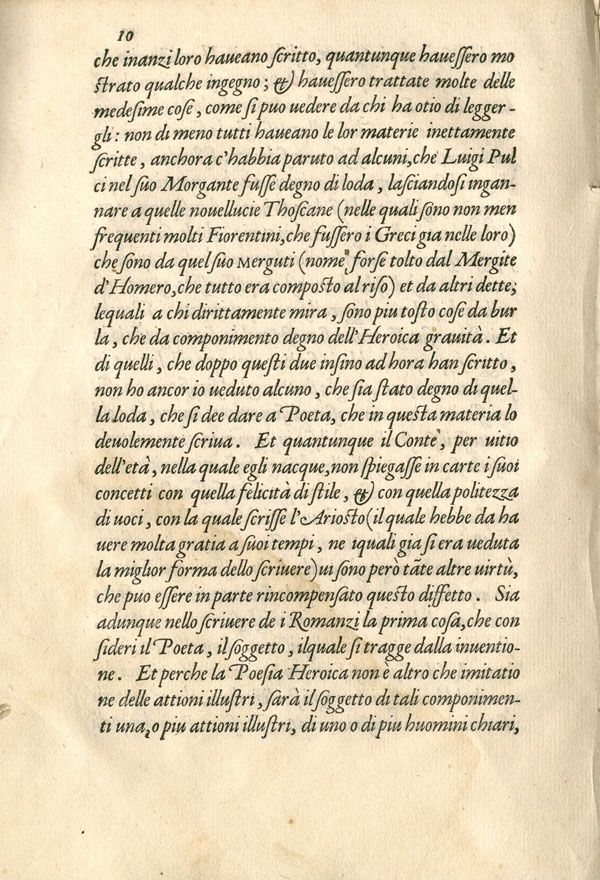 10
che inanzi loro haueano ſcritto, quantunque haueſſero mo
ſtrato qualche ingegno; & haueſſero trattate molte delle
medeſime coſe, come ſi puo uedere da chi ha otio di legger-
gli: non di meno tutti haueano le lor materie inettamente
ſcritte, anchora c'habbia paruto ad alcuni, che Luigi Pul
ci nel ſuo Morgante fuſſe degno di loda, laſciandoſi ingan-
nare a quelle nouellucie Thoſcane (nelle quali ſono non men
frequenti molti Fiorentini, che fuſſero i Greci gia nelle loro)
che ſono da quel ſuo Merguti (nome forſe tolto dal Mergite
d'Homero, che tutto era compoſto al riſo) et da altri dette;
lequali a chi dirittamente mira, ſono piu toſto coſe da bur
la, che da componimento degno dell'Heroica grauità. Et
di quelli, che doppo queſti due inſino ad hora han ſcritto,
non ho ancor io ueduto alcuno, che ſia ſtato degno di quel-
la loda, che ſi dee dare a Poeta, che in queſta materia lo
deuolemente ſcriua. Et quantunque il Conte, per uitio
dell'età, nella quale egli nacque, non ſpiegaſſe in carte i ſuoi
concetti con quella felicità di ſtile, & con quella politezza
di uoci, con la quale ſcriſſe l'Arioſto (il quale hebbe da ha
uere molta gratia a ſuoi tempi, ne iquali gia ſi era ueduta
la miglior forma dello ſcriuere) ui ſono però tãte altre uirtù,
che puo eſſere in parte rincompenſato queſto diffetto. Sia
adunque nello ſcriuere de i Romanzi la prima coſa, che con
ſideri il Poeta, il ſoggetto, ilquale ſi tragge dalla inuentio-
ne. Et perche la Poeſia Heroica non è altro che imitatio
ne delle attioni illuſtri, ſarà il ſoggetto di tali componimen-
ti una, o piu attioni illuſtri, di uno o di piu huomini chiari,